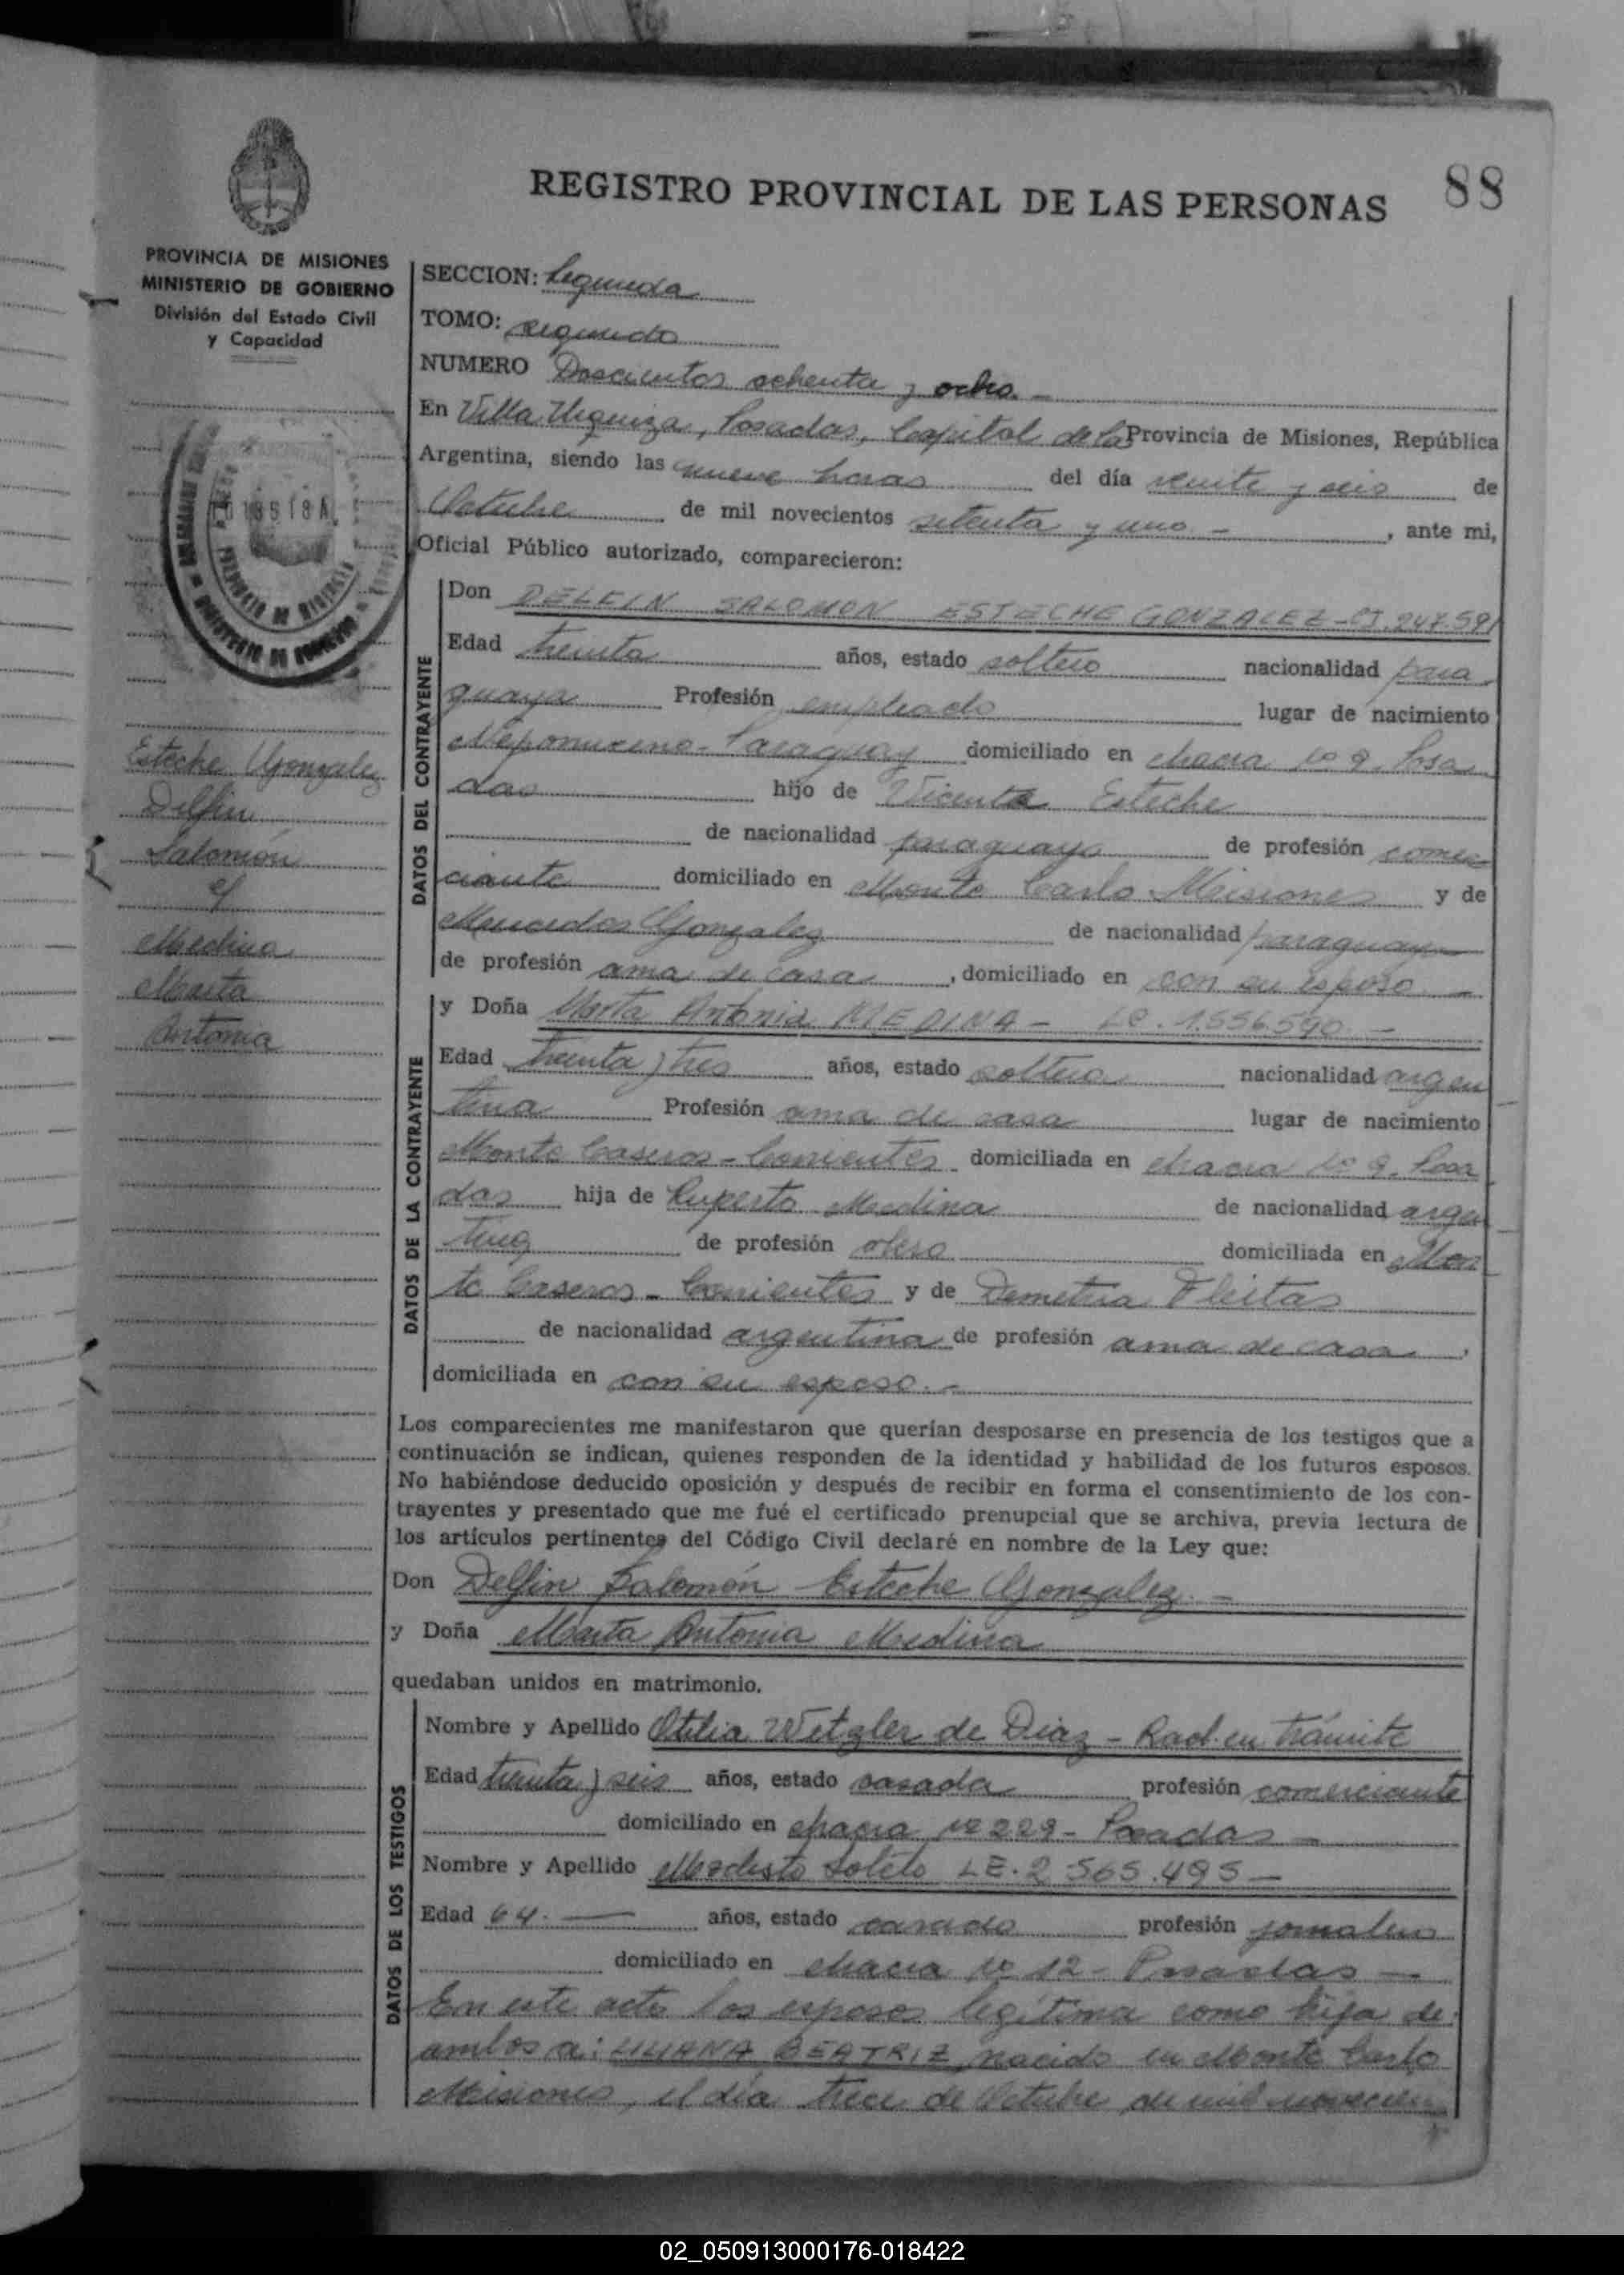 88
REGISTRO PROVINCIAL DE LAS PERSONAS
PROVINCIA DE MISIONES
MINISTERIO DE GOBIERNO
División del Estado Civil
y Capacidad
SECCION: Segunda
TOMO: segundo
NUMERO Doscientos ochenta y ocho. -
En Villa Urquiza, Posadas, Capital de la Provincia de Misiones, República
Argentina, siendo las nueve horas del día veinte y seis de
Octubre de mil novecientos setenta y uno - , ante mi,
Oficial Público autorizado, comparecieron:
DATOS DEL CONTRAYENTE
Don DELFIN SALOMON ESTECHE GONZALEZ - CI. 247.591
Edad treinta años, estado soltero nacionalidad para
guaya Profesión empleado lugar de nacimiento
Nepomuceno - Paraguay domiciliado en chacra No 9. Posa
das hijo de Vicente Esteche
de nacionalidad paraguaya de profesión comer
ciante domiciliado en Monte Carlo Misiones y de
Mercedes Gonzalez de nacionalidad paraguaya
de profesión ama de casa , domiciliado en con su esposo -
DATOS DE LA CONTRAYENTE
y Doña Marta Antonia MEDINA - LC. 1.556.590 -
Edad treinta y tres años, estado soltera nacionalidad argen
tina Profesión ama de casa lugar de nacimiento
Monte Caseros - Corrientes domiciliada en chacra No 9. Posa
das hija de Ruperto Medina de nacionalidad argen
tina de profesión obrero domiciliada en Mon
te Caseros - Corrientes y de Demetria Fleitas
de nacionalidad argentina de profesión ama de casa ,
domiciliada en con su esposo. -
Esteche Gonzalez
Delfin
Salomón
c/
Medina
Marta
Antonia
Los comparecientes me manifestaron que querían desposarse en presencia de los testigos que a
continuación se indican, quienes responden de la identidad y habilidad de los futuros esposos.
No habiéndose deducido oposición y después de recibir en forma el consentimiento de los con-
trayentes y presentado que me fué el certificado prenupcial que se archiva, previa lectura de
los artículos pertinentes del Código Civil declaré en nombre de la Ley que:
Don Delfin Salomón Esteche Gonzalez. -
y Doña Marta Antonia Medina
quedaban unidos en matrimonio.
DATOS DE LOS TESTIGOS
Nombre y Apellido Otilia Wetzler de Diaz - Rad. en trámite
Edad treinta y seis años, estado casada profesión comerciante
domiciliado en chacra No 229 - Posadas -
Nombre y Apellido Modesto Sotelo LE. 2.565.495 -
Edad 64. - años, estado casado profesión jornalero
domiciliado en chacra No 12 - Posadas -
En este acto los esposos legitima como hija de
ambos a: LILIANA BEATRIZ nacido en Monte Carlo
Misiones, el día trece de Octubre de mil novecien
02_050913000176-018422